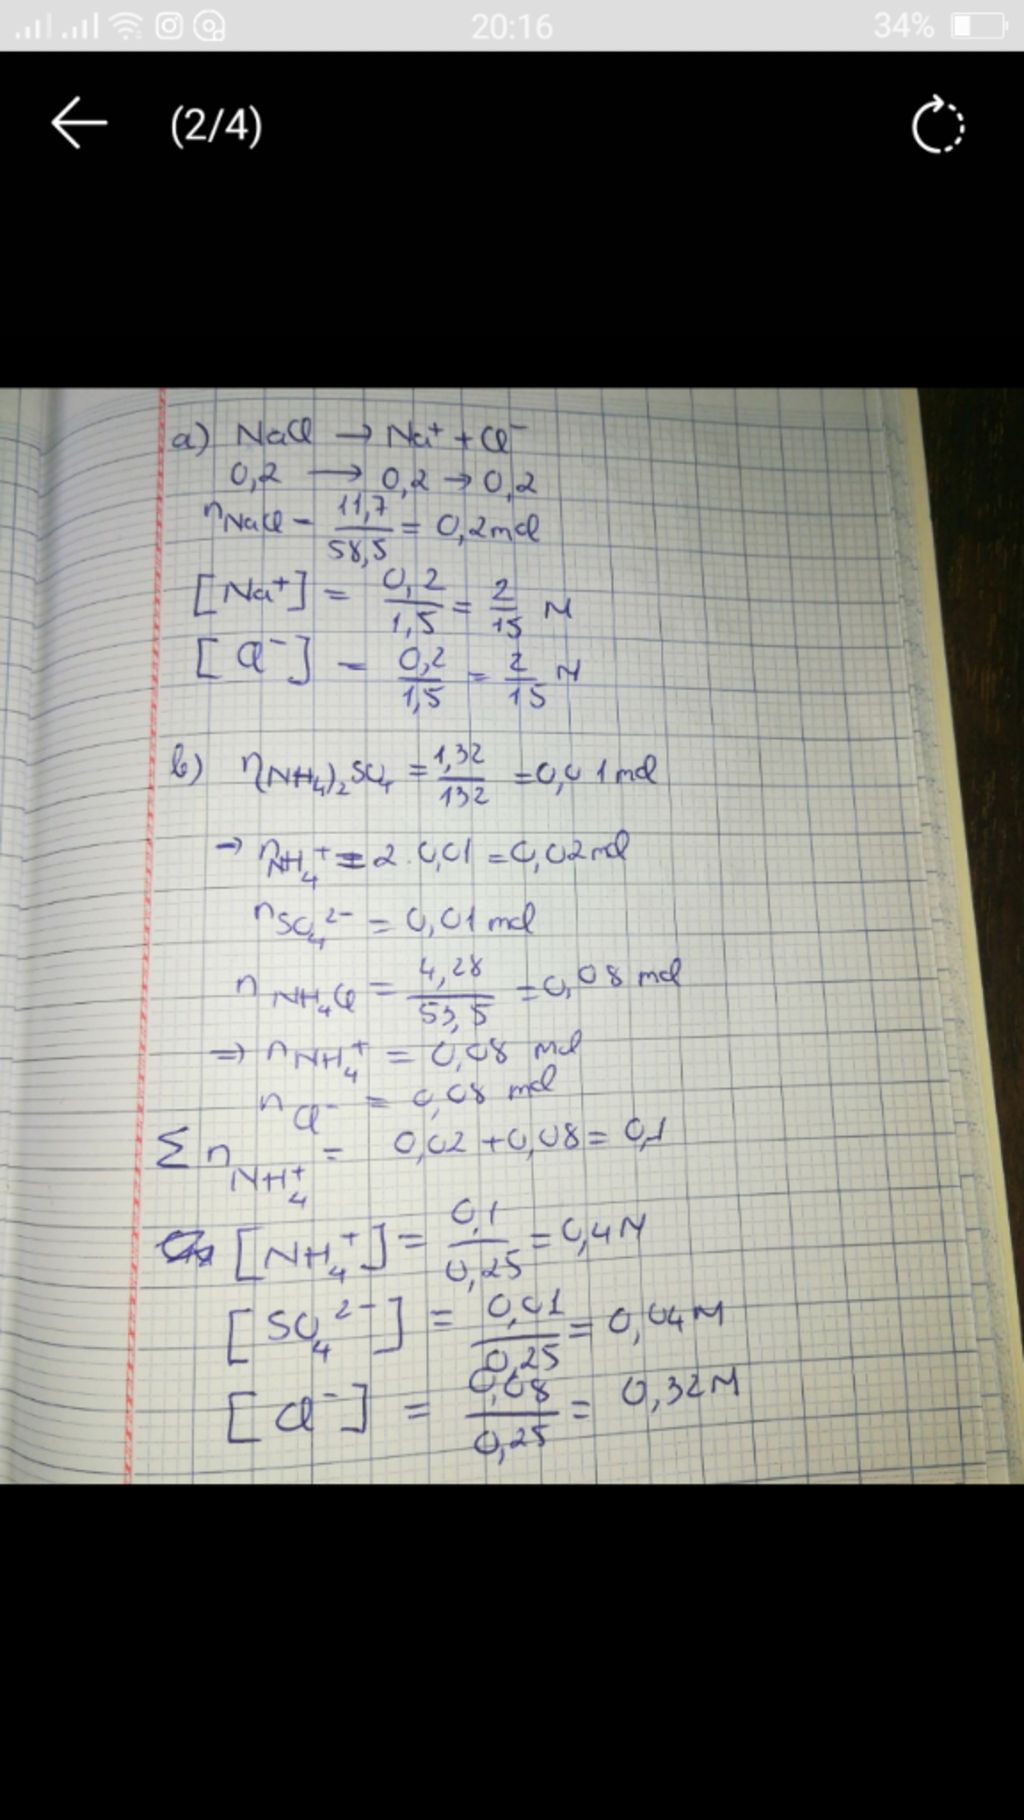 20:16
34%
(2/4)
a) NaCl → Na⁺ + Cl⁻
0,2 → 0,2 → 0,2
nNaCl = 11,7/58,5 = 0,2 mol
[Na⁺] = 0,2/1,5 = 2/15 M
[Cl⁻] = 0,2/1,5 = 2/15 M
b) n(NH₄)₂SO₄ = 1,32/132 = 0,01 mol
→ nNH₄⁺ = 2.0,01 = 0,02 mol
nSO₄²⁻ = 0,01 mol
nNH₄Cl = 4,28/53,5 = 0,08 mol
⇒ nNH₄⁺ = 0,08 mol
nCl⁻ = 0,08 mol
Σ nNH₄⁺ = 0,02 + 0,08 = 0,1
[NH₄⁺] = 0,1/0,25 = 0,4 M
[SO₄²⁻] = 0,01/0,25 = 0,04 M
[Cl⁻] = 0,08/0,25 = 0,32 M